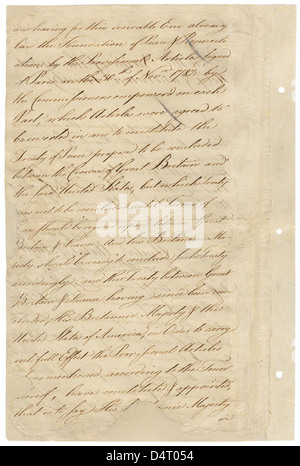 and having for this desirable End already
laid the Foundation of Peace & Reconcili-
ation by the Provisional Articles signed
at Paris on the 30th of Novr 1782, by
the Commissioners empowered on each
Part, which Articles were agreed to
be inserted in and to constitute the
Treaty of Peace proposed to be concluded
between the Crown of Great Britain and
the said United States, but which Treaty
was not to be concluded until Terms of
Peace should be agreed upon between Great
Britain & France, And his Britannic
Majesty should be ready to conclude such Treaty
accordingly: and the Treaty between Great
Britain & France having since been con-
cluded, His Britannic Majesty & the
United States of America, in Order to carry
into full Effect the Provisional Articles
abovementioned, according to the Tenor
thereof, have constituted & appointed,
that is to say His Britannic Majesty
on
alamy
D4T054